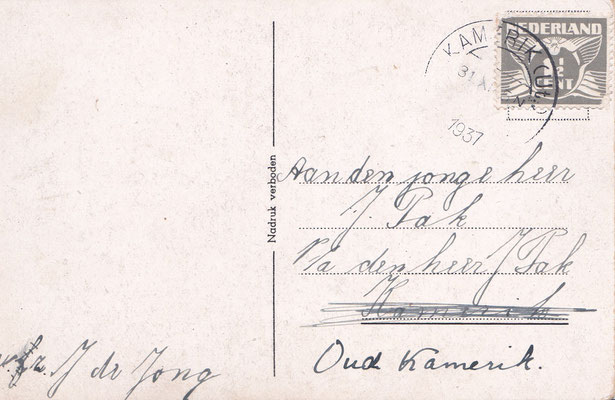 NEDERLAND
1½
CENT
KAMERIK (Ut
31
1937
Nadruk verboden
Aan den jonge heer
J. Pak
P/a den heer J Pak
Kamerik
Oud Kamerik.
J de Jong